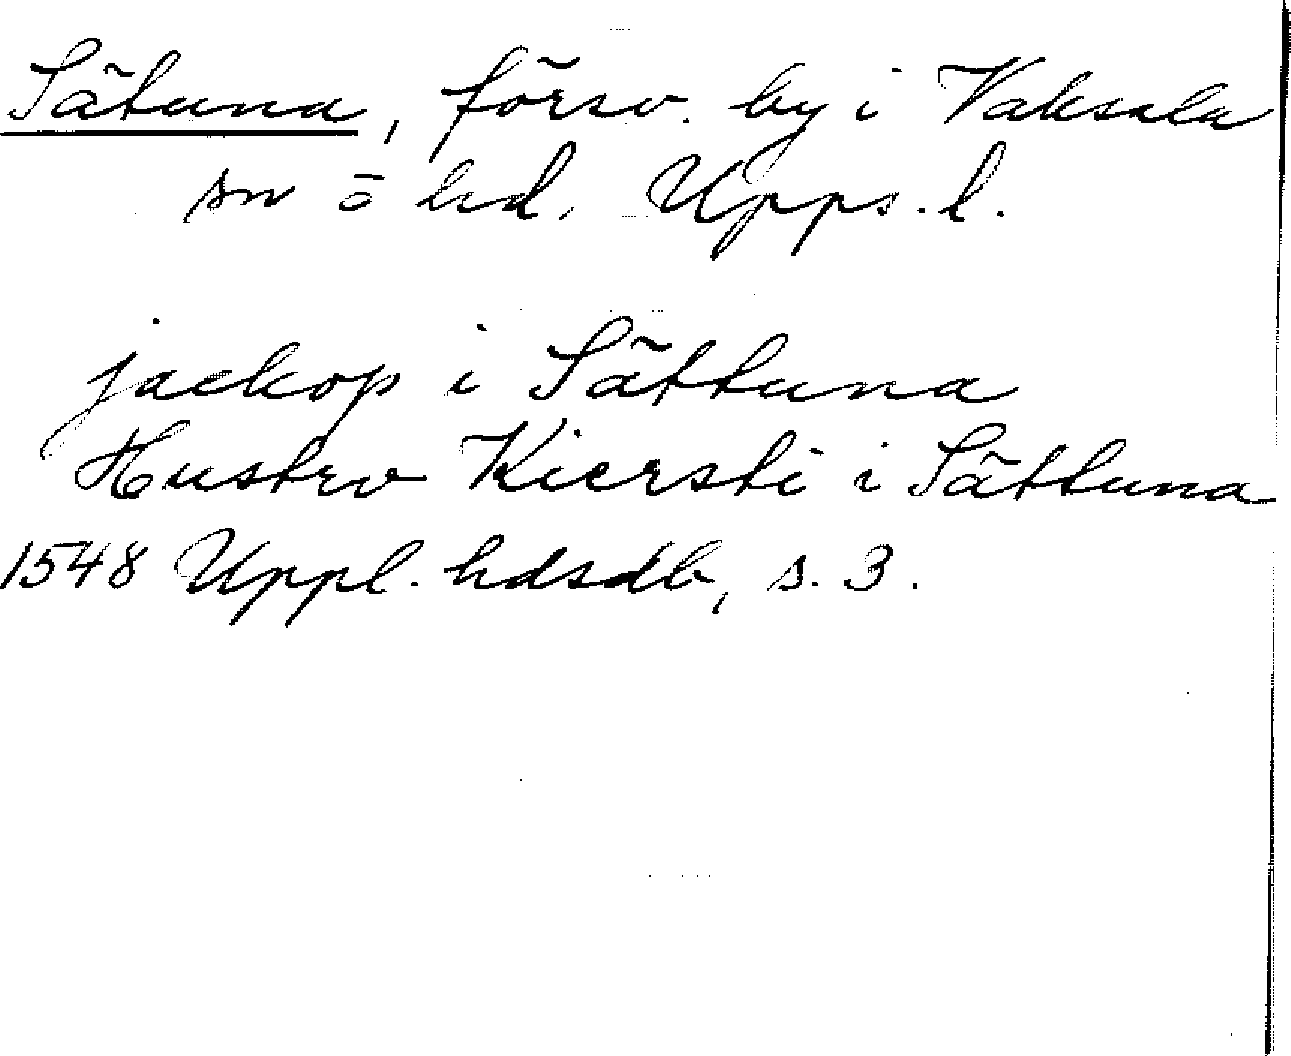 Sätuna, försv. by i Vaksala
sn o hd, Upps. l.
jackop i Sättuna
Hustrv Kiersti i Sättuna
1548 Uppl. hdsdb, s. 3.